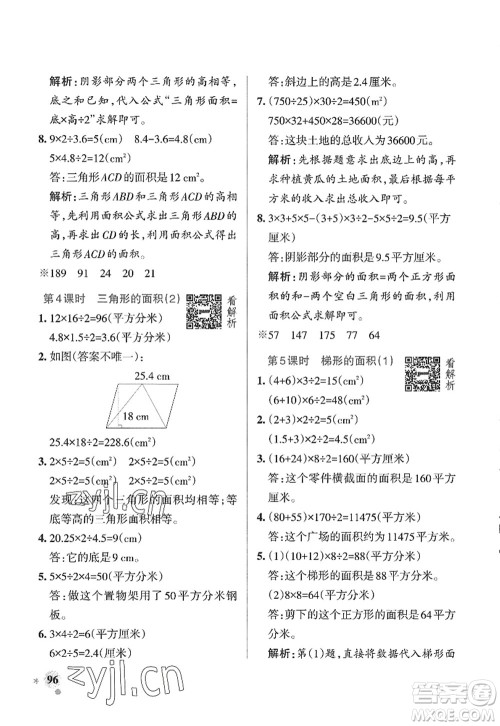 解析:阴影部分两个三角形的高相等,
底之和已知,代入公式“三角形的面积=
底×高÷2”求解即可。
8. 9×2÷3.6=5(cm) 8.4-3.6=4.8(cm)
5×4.8÷2=12(cm²)
答:三角形ACD的面积是12 cm²。
解析:三角形ABD和三角形ACD等高,
先利用面积公式求出三角形ABD的高,
也就是ACD的高,再利用面积公式得出
三角形ACD的面积。
※189 91 24 20
第4课时 三角形的面积(2)
看解析
1. 12×16÷2=96(平方分米)
4.8×1.5÷2=3.6(平方米)
2. 如图(答案不唯一):
25.4 cm
18 cm
25.4×18÷2=228.6(cm²)
3. 2×5÷2=5(cm²) 2×5÷2=5(cm²)
2×5÷2=5(cm²) 2×5÷2=5(cm²)
发现:这四个三角形的面积相等,等
底等高的三角形面积相等。
4. 20.25×2÷4.5=9(cm)
答:它的底是9 cm。
5. 10×10÷2=50(平方分米)
答:做这个置物架用了50平方分米钢
板。
6. 3×4÷2=6(平方分米)
6×2÷5=2.4(分米)
96
zyjl.cn
答:斜边上的高是2.4分米。
7. (750÷25)×30÷2=450(m²)
750×32+450×28=36600(元)
答:这块土地的总收入为36600元。
解析:先根据题意求出底,再求出三角
形种植黄瓜的土地面积,最后求出总
收入。
8. 3×3+5×5-(3+5)×5÷2-3×3÷2=9.5(平方
厘米)
答:阴影部分的面积是9.5平方厘米。
解析:阴影面积=两个正方形面积
和-两个空白三角形的面积,代入求值
即可。
※57 147 175 77 64
第5课时 梯形的面积(1)
看解析
1. (4+6)×3÷2=15(平方厘米)
(6+10)×4÷2=32(平方厘米)
2. (2+3)×2÷2=5(cm²)
(1.5+3)×2÷2=4.5(cm²)
3. (16+24)×8÷2=160(平方厘米)
答:这个零件横截面的面积是160平方
厘米。
4. (80+55)×170÷2=11475(平方米)
答:这个广场的面积是11475平方米。
5. (1)(10+12)×8÷2=88(平方分米)
答:这个梯形的面积是88平方分米。
(2)8×8=64(平方分米)
答:剪下的这个正方形的面积是64平方
分米。
解析:第(1)题,直接将数据代入梯形面
答案圈
MXQE.COM